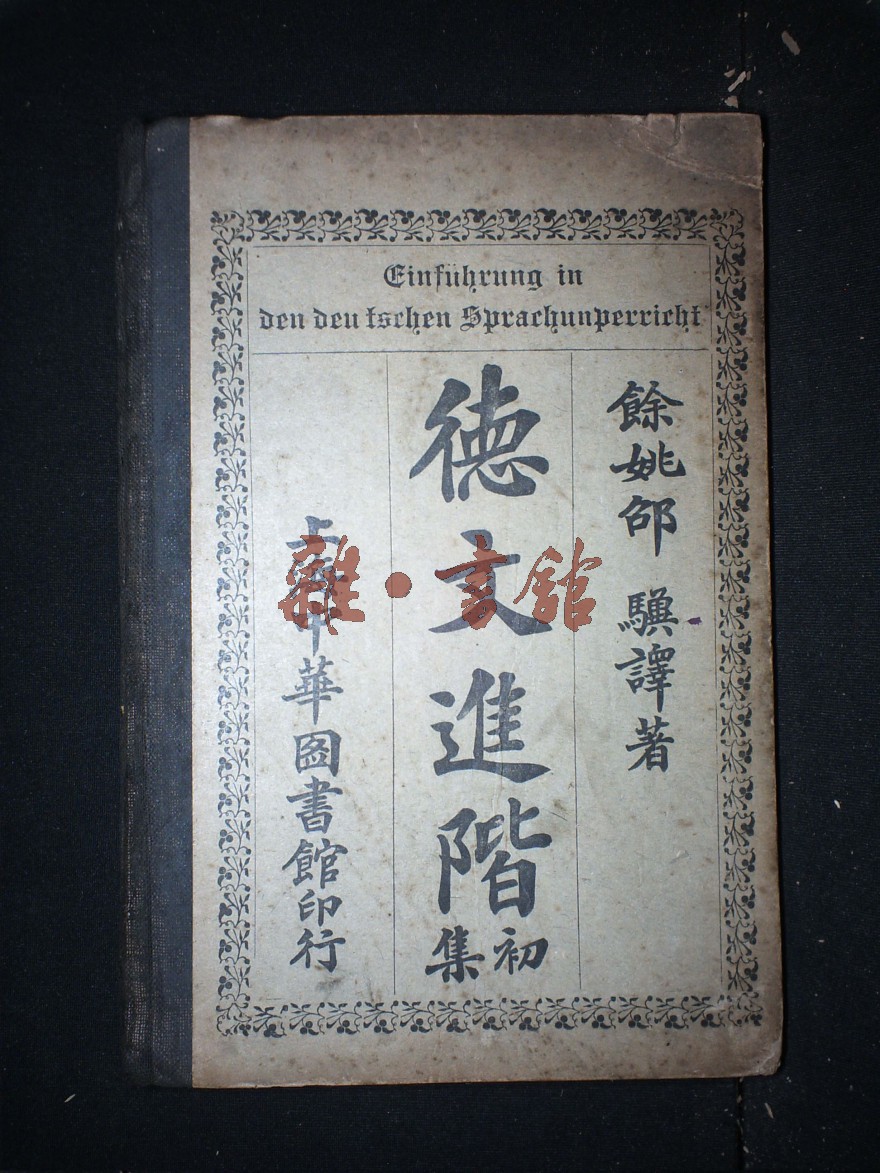 Einführung in
den deu tschen Sprachunperricht
餘姚邵 驥譯著
德文進階
初集
上海中華圖書館印行
雜·書館